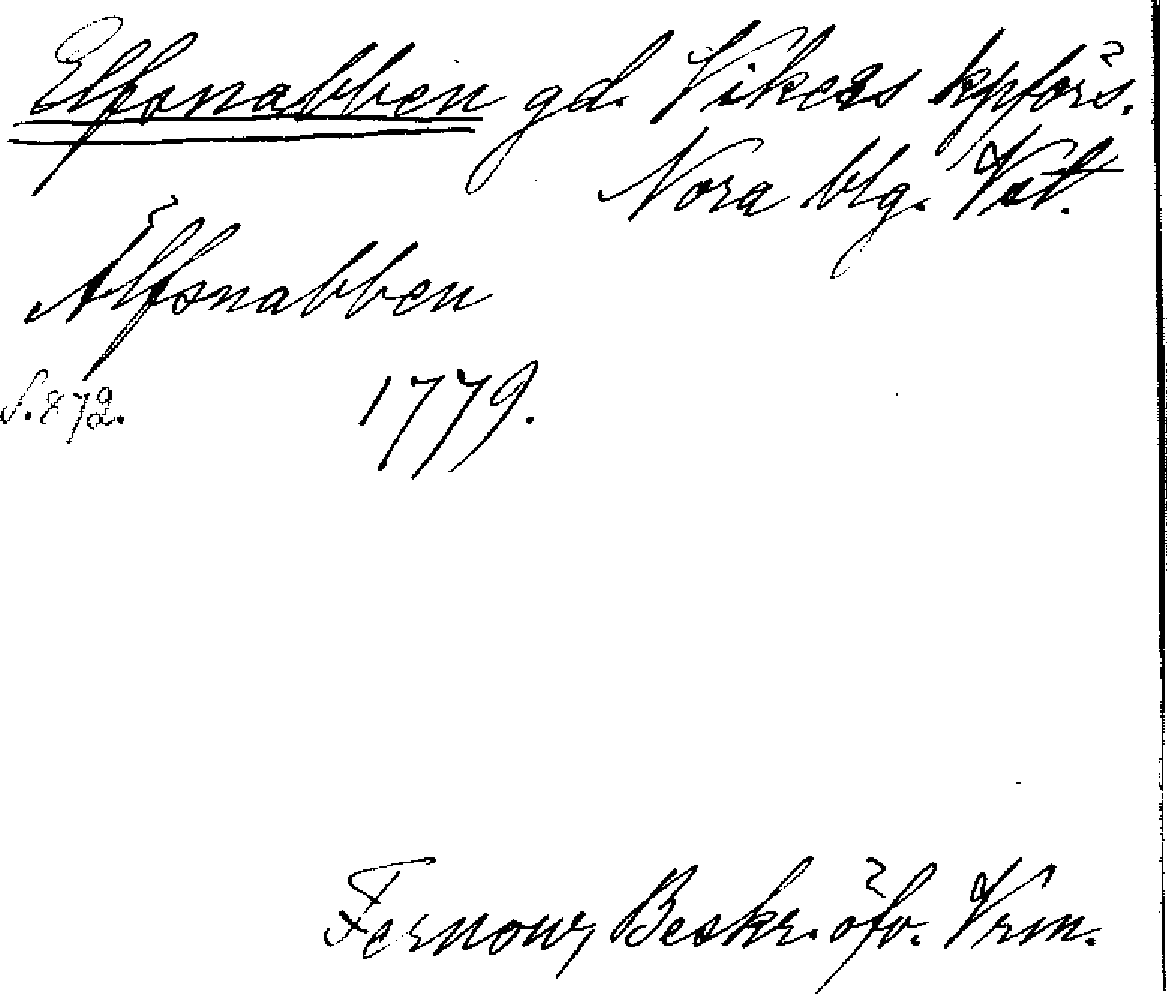 Elfsnabben gd. Vikers kpförs.
Nora blg. Vstl.
Älfsnabben
S. 872. 1779.
Fernow, Beskr. öfv. Vrm.